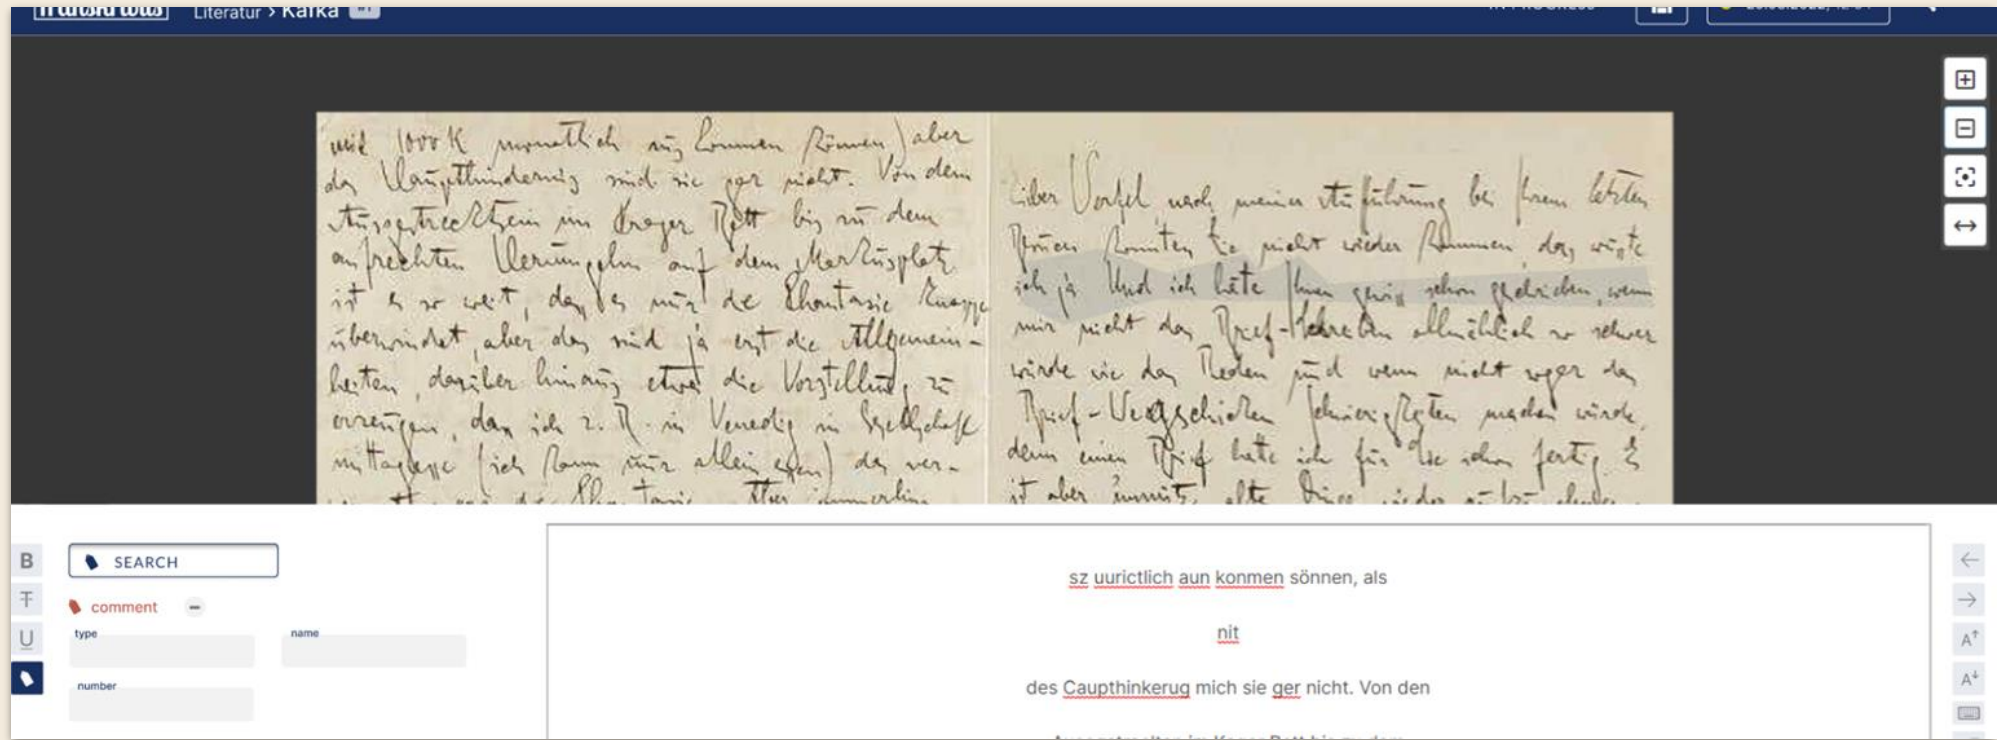 Transkribus
Literatur > Kafka
IN PROGRESS
mit 1000 K monatlich auskommen können) aber
das Haupthindernis sind sie gar nicht. Von dem
Ausgestrecktsein im Prager Bett bis zu dem
aufrechten Herumgehn auf dem Markusplatz
ist es so weit, dass es nur die Phantasie knapp
überwindet, aber das sind ja erst die Allgemein-
heiten, darüber hinaus etwa die Vorstellung zu
erzeugen, dass ich z. B. in Venedig in Gesellschaft
mittagesse (ich kann nur allein essen) das ver-
die Phantasie. Aber immerhin
Lieber Werfel, nach meiner Aufführung bei Ihrem letzten
konnten Sie nicht wieder kommen, das wusste
ich ja Und ich hätte Ihnen gewiss schon geschrieben, wenn
mir nicht das Brief-Schreiben allmählich so schwer
würde wie das Reden und wenn nicht sogar das
Brief-Wegschicken Schwierigkeiten machen würde,
denn einen Brief hatte ich für Sie schon fertig. Es
ist aber unnütz, alte Dinge wieder
B
SEARCH
T
comment
U
type name
number
sz uurictlich aun konmen sönnen, als
nit
des Caupthinkerug mich sie ger nicht. Von den
A
A